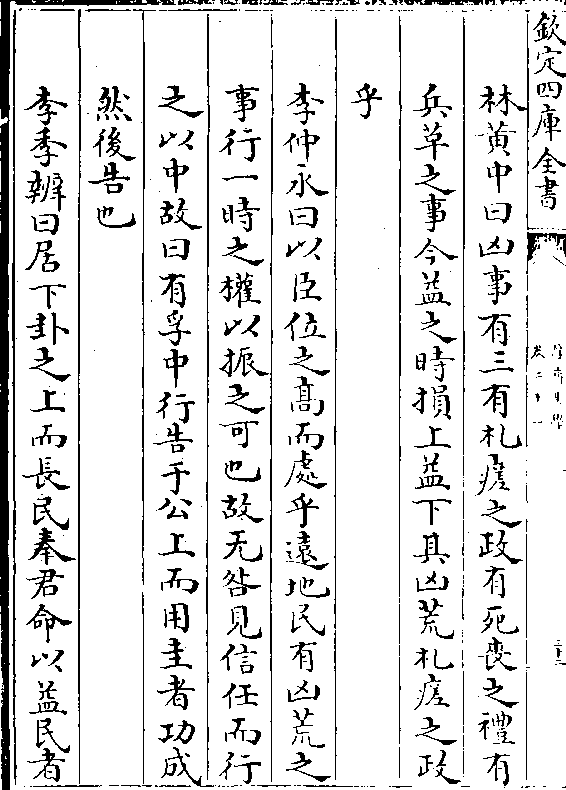 欽定四庫全書
林黄中曰凶事有三有札瘥之政有死喪之禮有
兵革之事今益之時損上益下其凶荒札瘥之政
乎
李仲永曰以臣位之髙而處乎遠地民有凶荒之
事行一時之權以振之可也故无咎見信任而行
之以中故曰有孚中行告于公上而用圭者功成
然後告也
李季辨曰居下卦之上而長民奉君命以益民者